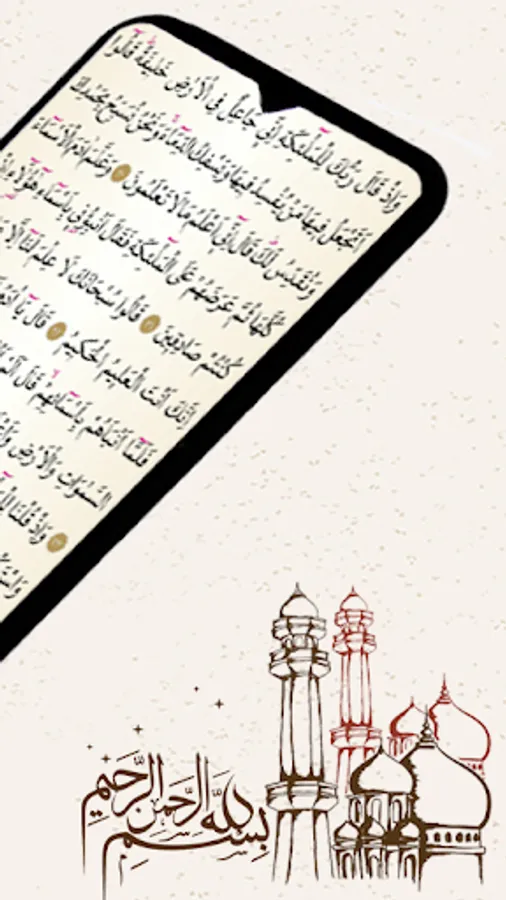 وَاِذْ قَالَ رَبُّكَ لِلْمَلٰٓئِكَةِ اِنّ۪ي جَاعِلٌ فِي الْاَرْضِ خَل۪يفَةًۜ قَالُٓوا
اَتَجْعَلُ ف۪يهَا مَنْ يُفْسِدُ ف۪يهَا وَيَسْفِكُ الدِّمَٓاءَۚ وَنَحْنُ نُسَبِّحُ بِحَمْدِكَ
وَنُقَدِّسُ لَكَۜ قَالَ اِنّ۪ٓي اَعْلَمُ مَا لَا تَعْلَمُونَ ٣٠ وَعَلَّمَ اٰدَمَ الْاَسْمَٓاءَ
كُلَّهَا ثُمَّ عَرَضَهُمْ عَلَى الْمَلٰٓئِكَةِ فَقَالَ اَنْبِؤُ۫ن۪ي بِاَسْمَٓاءِ هٰٓؤُ۬لَٓاءِ اِنْ
كُنْتُمْ صَادِق۪ينَ ٣١ قَالُوا سُبْحَانَكَ لَا عِلْمَ لَنَٓا اِلَّا
اِنَّكَ اَنْتَ الْعَل۪يمُ الْحَك۪يمُ ٣٢ قَالَ يَٓا اٰدَمُ
فَلَمَّٓا اَنْبَاَهُمْ بِاَسْمَٓائِهِمْۙ قَالَ اَلَمْ
السَّمٰوَاتِ وَالْاَرْضِۙ
٣٣ وَاِذْ قُلْنَا
بسم الله الرحمن الرحيم